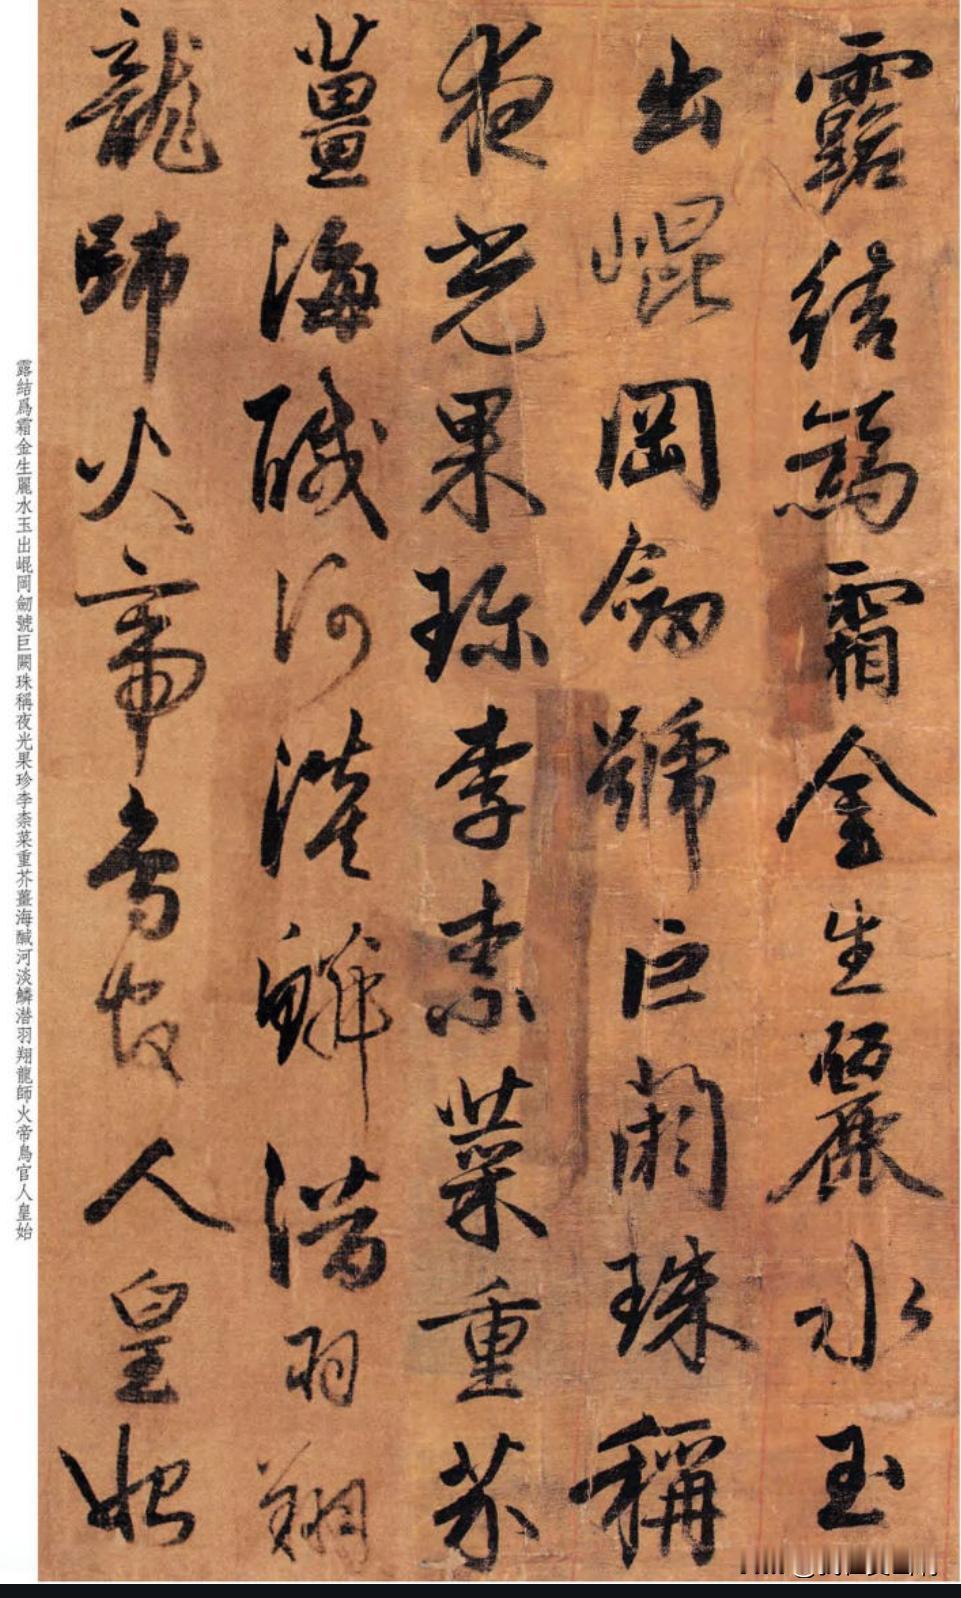 露結為霜金生麗水玉
出崐岡劒號巨闕珠稱
夜光果珍李柰菜重芥
薑海醎河淡鱗潜羽翔
龍師火帝鳥官人皇始
露結爲霜金生麗水玉出崐岡劒號巨闕珠稱夜光果珍李柰菜重芥薑海醎河淡鱗潜羽翔龍師火帝鳥官人皇始